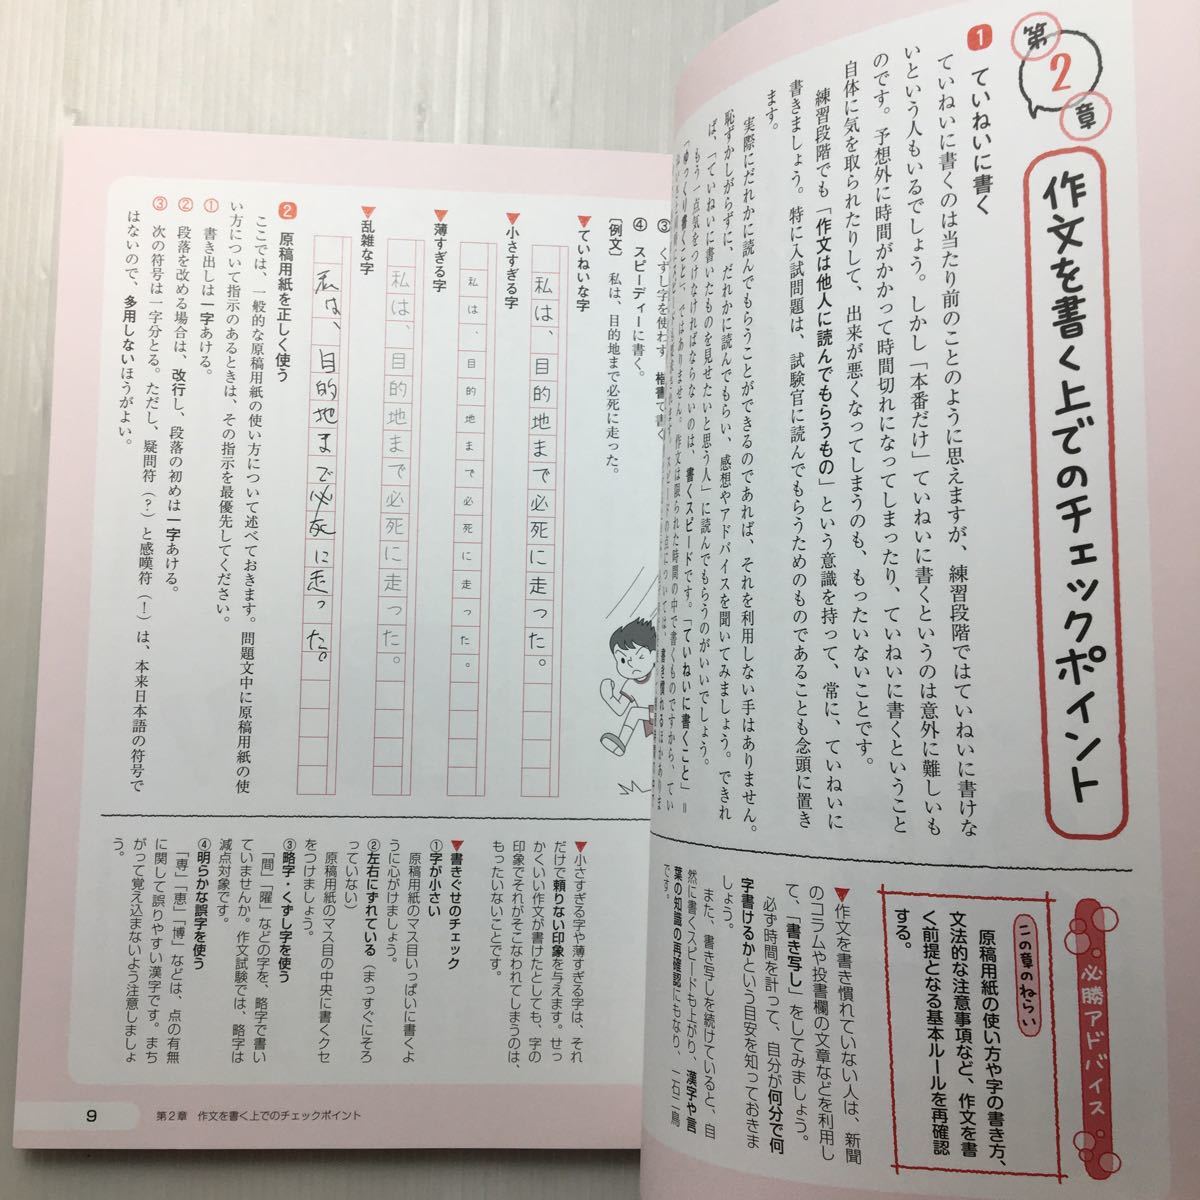 第2章
作文を書く上でのチェックポイント
1 ていねいに書く
ていねいに書くのは当たり前のことのように思えますが、練習段階ではていねいに書けな
いという人もいるでしょう。しかし「本番だけ」ていねいに書くというのは意外に難しいも
のです。予想外に時間がかかって時間切れになってしまったり、ていねいに書くということ
自体に気を取られたりして、出来が悪くなってしまうのも、もったいないことです。
練習段階でも「作文は他人に読んでもらうもの」という意識を持って、常に、ていねいに
書きましょう。特に入試問題は、試験官に読んでもらうためのものであることも念頭に置き
ます。
実際にだれかに読んでもらうことができるのであれば、それを利用しない手はありません。
恥ずかしがらずに、だれかに読んでもらい、感想やアドバイスを聞いてみましょう。できれ
ば、「ていねいに書いたものを見せたいと思う人」に読んでもらうのがいいでしょう。
もう一点気をつけなければならないのは、書くスピードです。「ていねいに書くこと」＝
「ゆっくり書くこと」ではありません。作文は限られた時間の中で書くものですから、てい
必勝アドバイス
この章のねらい
原稿用紙の使い方や字の書き方、
文法的な注意事項など、作文を書
く前提となる基本ルールを再確認
する。
▼作文を書き慣れていない人は、新聞
のコラムや投書欄の文章などを利用し
て、「書き写し」をしてみましょう。
必ず時間を計って、自分が何分で何
字書けるかという目安を知っておきま
しょう。
また、書き写しを続けていると、自
然に書くスピードも上がり、漢字や言
葉の知識の再確認にもなり、一石二鳥
です。
③ くずし字を使わず、楷書で書く
④ スピーディーに書く。
〔例文〕 私は、目的地まで必死に走った。
▼ていねいな字
私は、目的地まで必死に走った。
▼小さすぎる字
私は、目的地まで必死に走った。
▼薄すぎる字
私は、目的地まで必死に走った。
▼乱雑な字
私は、目的地まで必死に走った。
2 原稿用紙を正しく使う
ここでは、一般的な原稿用紙の使い方について述べておきます。問題文中に原稿用紙の使
い方について指示のあるときは、その指示を最優先してください。
① 書き出しは一字あける。
② 段落を改める場合は、改行し、段落の初めは一字あける。
③ 次の符号は一字分とる。ただし、疑問符（？）と感嘆符（！）は、本来日本語の符号で
はないので、多用しないほうがよい。
▼小さすぎる字や薄すぎる字は、それ
だけで頼りない印象を与えます。せっ
かくいい作文が書けたとしても、字の
印象でそれがそこなわれてしまうのは、
もったいないことです。
▼書きぐせのチェック
①字が小さい
原稿用紙のマス目いっぱいに書くよ
うに心がけましょう。
②左右にずれている（まっすぐにそろ
っていない）
原稿用紙のマス目の中央に書くクセ
をつけましょう。
③略字・くずし字を使う
「間」「曜」などの字を、略字で書い
ていませんか。作文試験では、略字は
減点対象です。
④明らかな誤字を使う
「専」「恵」「博」などは、点の有無
に関して誤りやすい漢字です。まち
がって覚え込まないよう注意しましょ
う。
9 第2章 作文を書く上でのチェックポイント